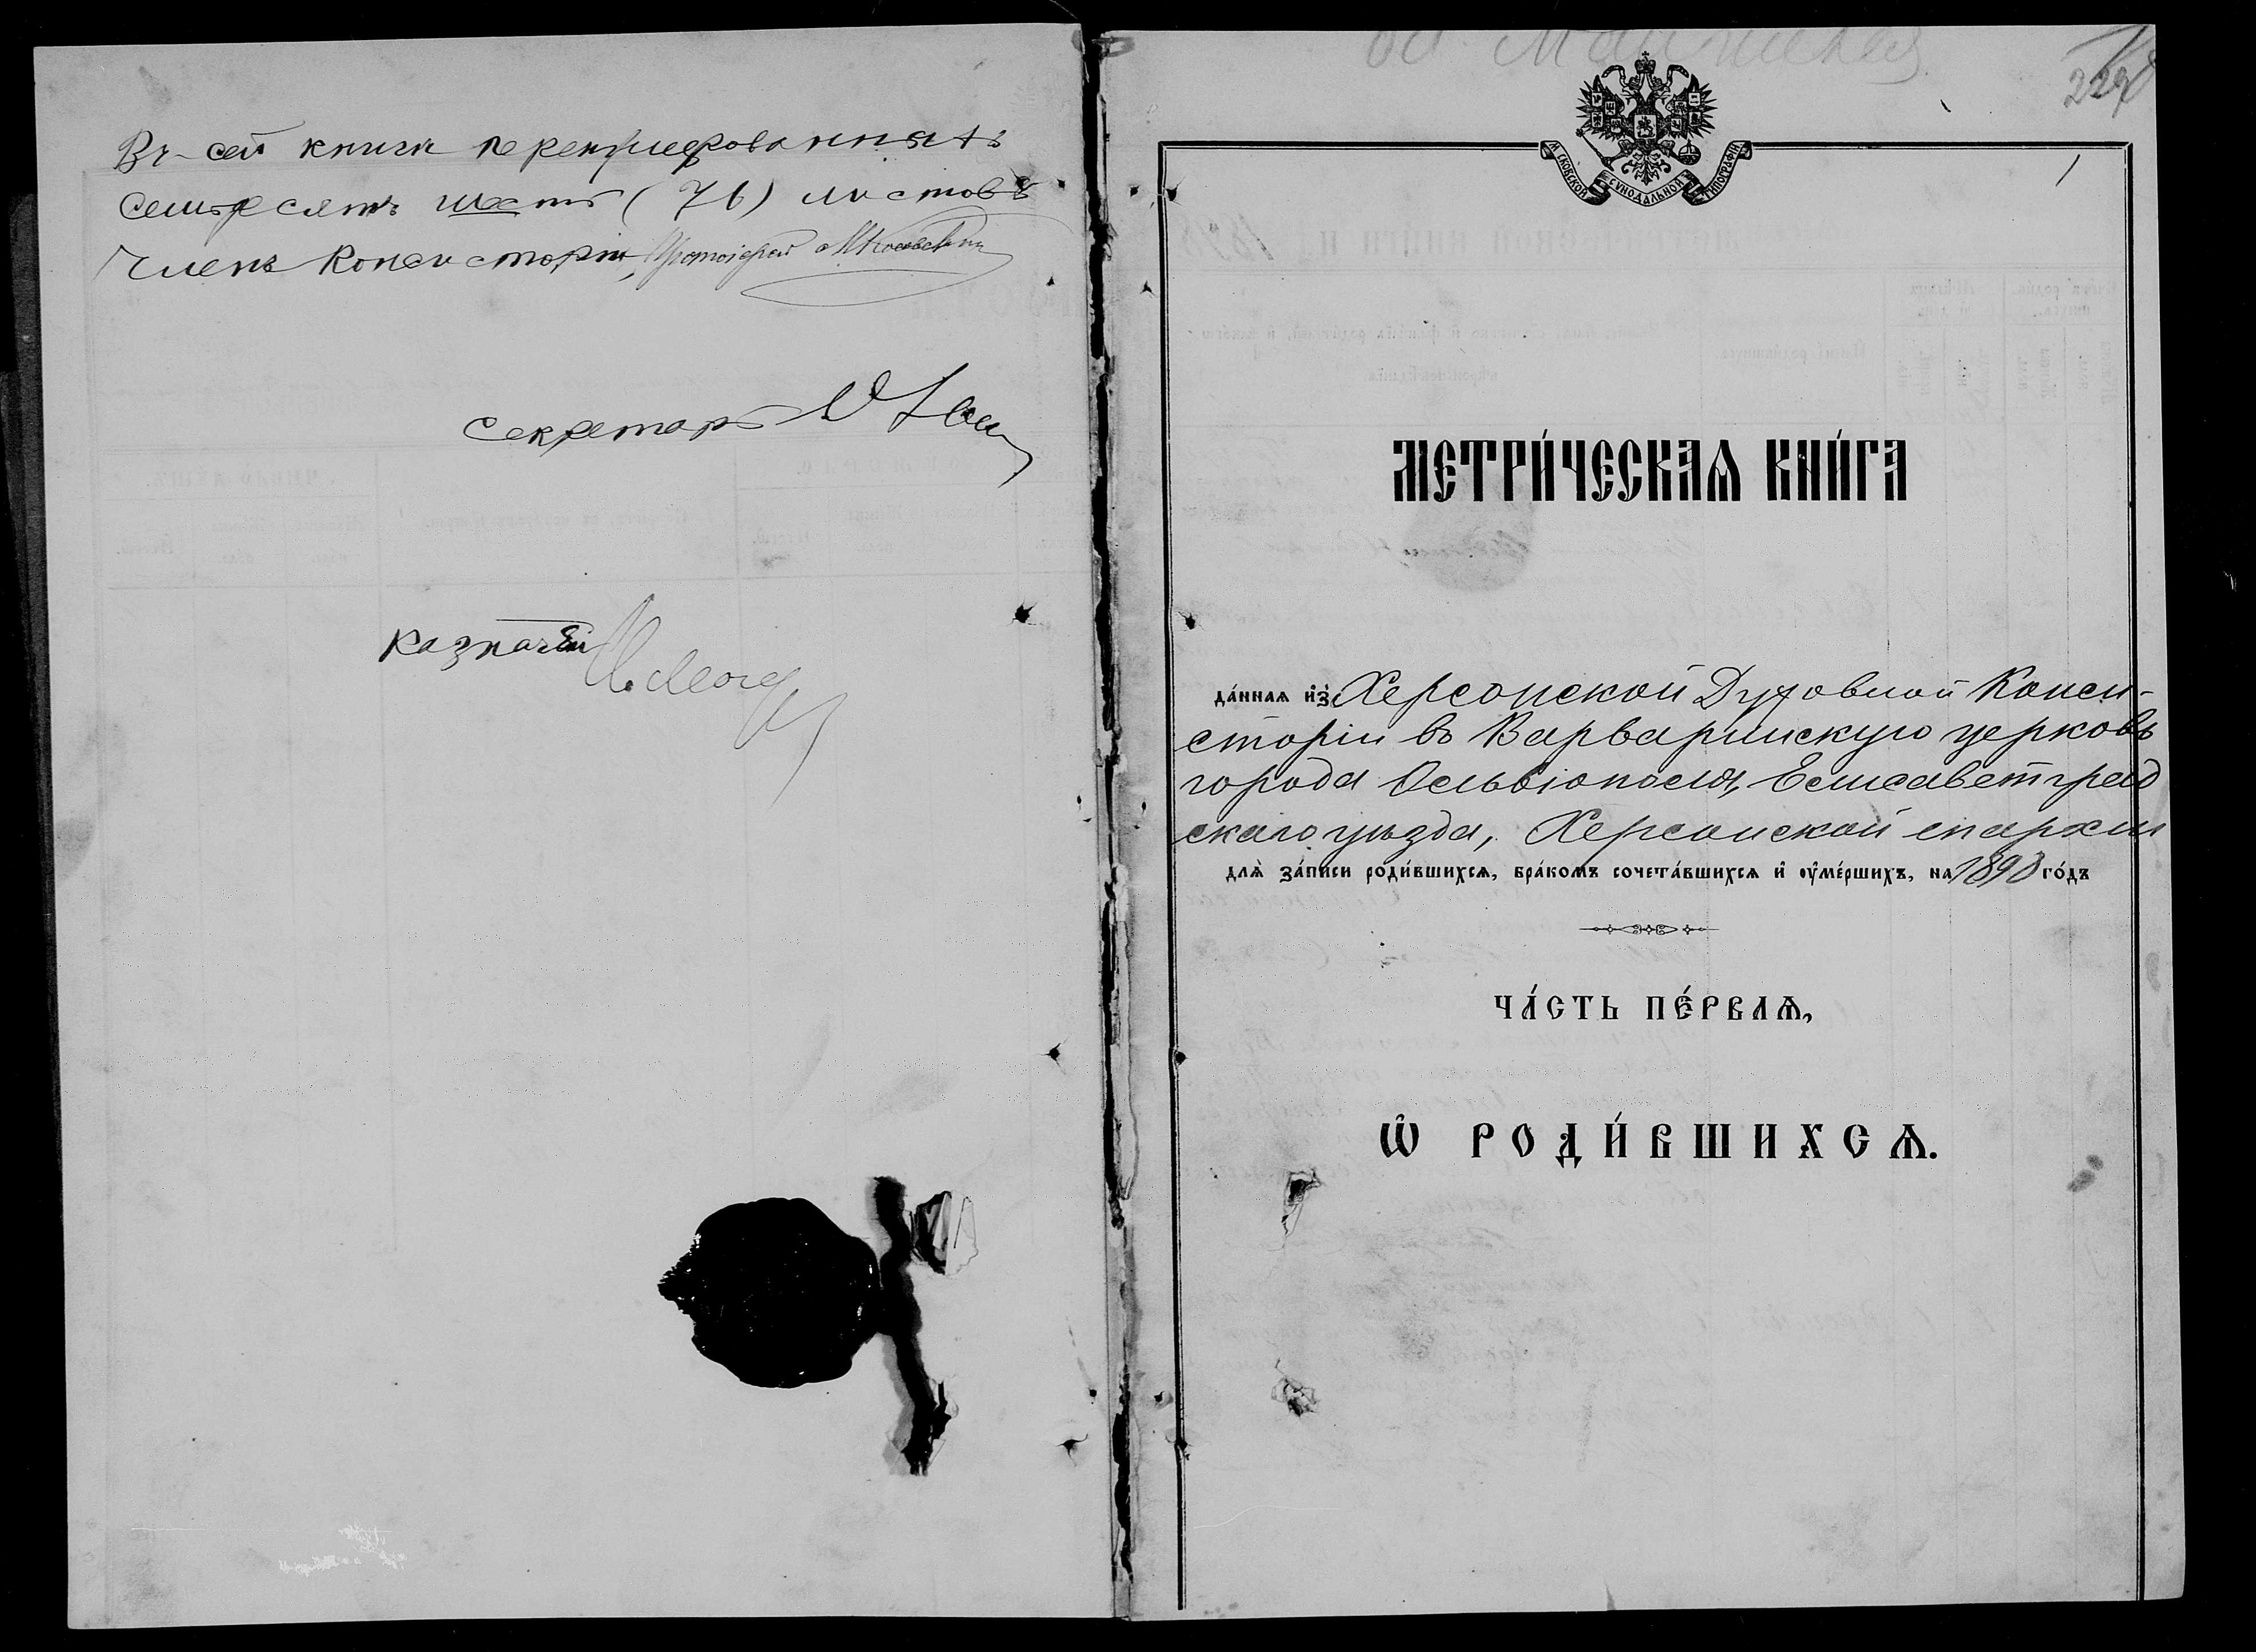 Въ сей книги перенумерованныхъ
семьдесятъ шесть (76) листовъ
Членъ Консисторіи, Протоіерей
Секретарь
Казначей
1
МОСКОВСКОЙ СУНОДАЛЬНОЙ ТИПОГРАФІИ
МЕТРИ́ЧЕСКАѦ КНИ́ГА
да́ннаѧ и҆з̾ Херсонской Духовной Конси-
сторіи въ Варваринскую церковь
города Ольвіополя, Елисаветград
скаго уѣзда, Херсонской епархіи
длѧ̀ за́писи роди́вшихсѧ, бра́комъ сочета́вшихсѧ и҆ ᲂу҆ме́ршихъ, на 1898 го́дъ
ЧА́СТЬ ПЕ́РВАѦ,
Ѽ РОДИ́ВШИХСѦ.